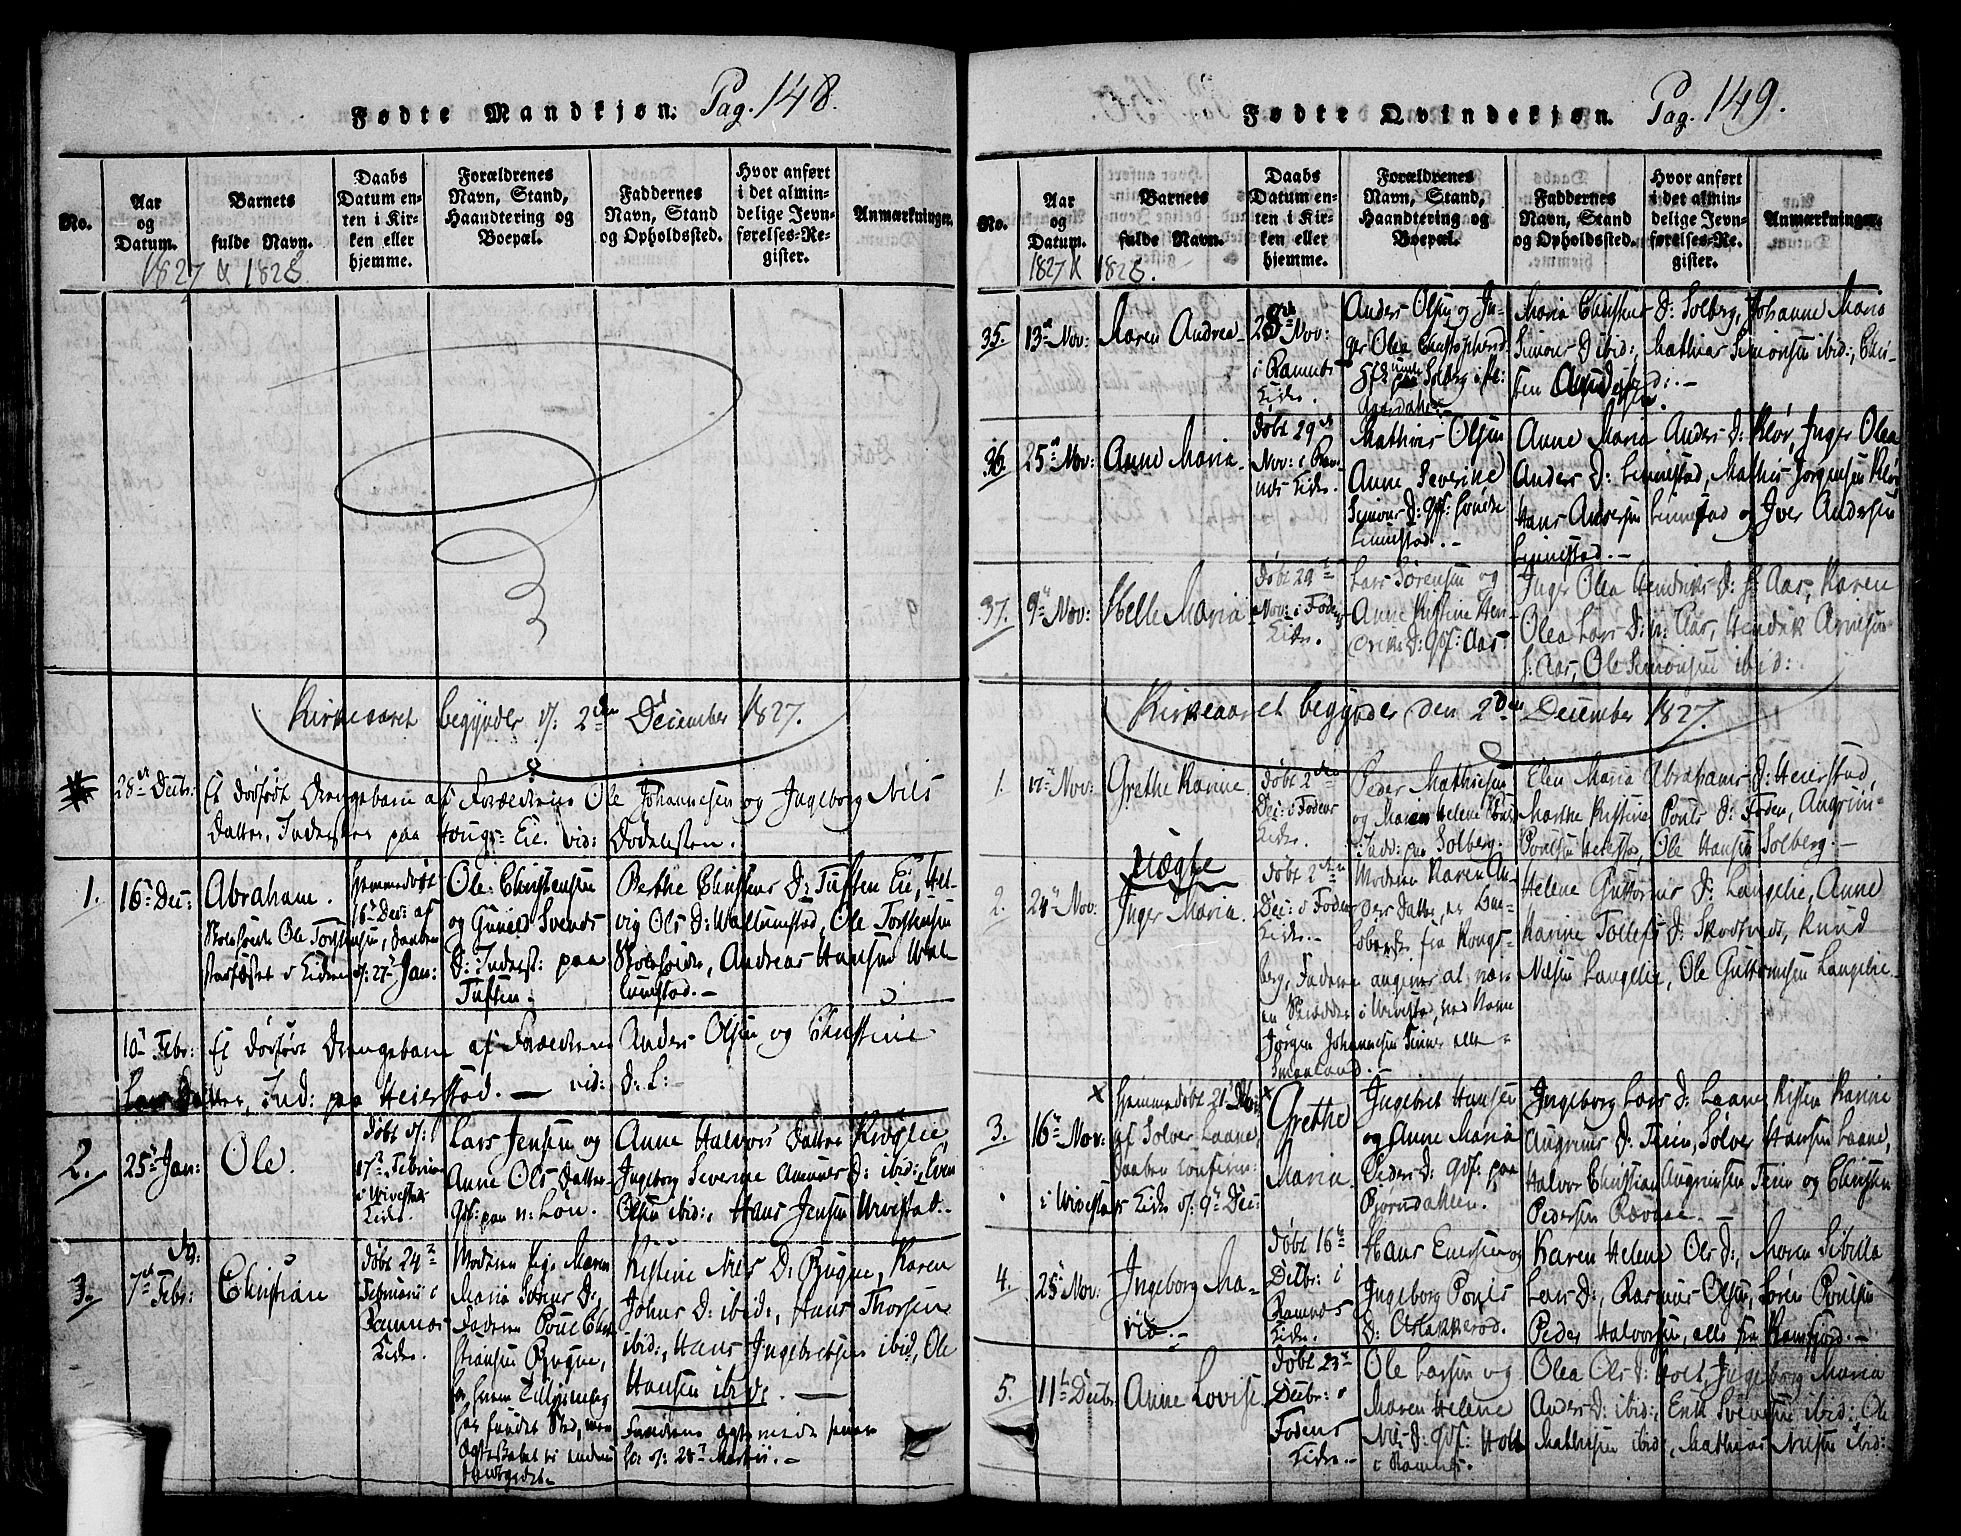 Fødte Mandkjøn. Pag. 148.
No.
Aar
og
Datum.
Barnets
fulde Navn.
Daabs
Datum en-
ten i Kir-
ken eller
hjemme.
Forældrenes
Navn, Stand,
Haandtering og
Boepæl.
Faddernes
Navn, Stand
og Opholdssted.
Hvor anført
i det almin-
delige Jevn-
førelses-Re-
gister.
Anmærkninger.
1827 & 1828
Kirkeaaret begynder d: 2den December 1827.
28de Decbr:
Et dødfødt Drengebarn af Forældrene Ole Johannesen og Ingeborg Nils
Datter, Inderster paa Houg- Eie. vid: Dødelisten.
1.
16de Dec:
Abraham.
Hjemmedøbt
16de Dec: af
Skoleh. Ole Torstensen, Daaben
stadfæstet i Kirken d: 27de Jan:
Ole Christensen
og Gunild Svends
D: Inderst: paa
Tuften.
Berthe Christens D: Tuften Eie, Hel-
vig Ols D: Wallumstad, Ole Torstensen
Skoleh., Andreas Hansen Wal-
lumstad. -
10de Febr:
Et dødfødt Drengebarn af Forældrene Anders Olsen og Christine
Lars Datter, Ind: paa Heierstad. - vid: D: L:
2.
25de Jan:
Ole.
Døbt d:
17de Februar
i Wivestad
Kirke.
Lars Jensen og
Anne Ols Datter
Gbf: paa n: Løn.
Anne Halvors Datter
Ingeborg Severine D: ibid:, Even
Olsen ibid:, Hans Jensen Wivestad. -
3.
7de Febr:
Christian
Døbt 24de
Februarii i
Ramnæs
Kirke.
Moderen Pige Maren
Maria Sørens D:
Faderen Poul Chri-
stiansen Bugne,
Kistine Nils D: Bugne, Karen
Johns D: ibid:, Hans Thorsen
ibid:, Hans Ingebretsen ibid:, Ole
Hansen ibide. -
Fødte Qvindekjøn. Pag. 149.
No.
Aar
og
Datum.
Barnets
fulde Navn.
Daabs
Datum en-
ten i Kir-
ken eller
hjemme.
Forældrenes
Navn, Stand,
Haandtering og
Boepæl.
Faddernes
Navn, Stand
og Opholdssted.
Hvor anført
i det almin-
delige Jevn-
førelses-Re-
gister.
Anmærkninger.
1827 & 1828.
35.
13de Nov:
Maren Andrea
Nov:
i Ramnæs
Kirke.
Anders Olsen og In-
ger Olea Christophers
Maria Christens D: Solberg, Johanne Maria
Simons D ibid:, Mathias Simonsen ibid:, Chri-
36.
25de Nov:
Anne Maria.
Døbt 29de
Nov: i Ram-
næs Kirke.
Mathias Olsen
Anne Severine
Simons D: Gbf: søndre
Linnestad. -
Anne Maria Anders D: Kløv, Inger Olea
Anders D: Linnestad, Mathis Jørgensen Kløv
Hans Andersen Linnestad og Iver Andersen
Linnestad. -
37.
9de Nov:
Helle Maria
Døbt 29de
Nov: i Fodens
Kirke.
Lars Sørensen og
Anne Kistine Hen-
driks D: Gbf: Aas
Inger Olea Hendriks D: s: Aas, Karen
Olea Lars D: n: Aas, Hendrik Arnesen
s: Aas, Ole Simonsen ibid:
Kirkeaaret begynder den 2den December 1827.
1.
17de Nov:
Grethe Karine.
Døbt 2den
Dec: i Fodens
Kirke.
Peder Mathisen
og Maren Helene
Ind: paa Solberg.
Elen Maria Abrahams D: Heierstad
Marthe Kistine Pouls D: Foden, Angrim
Poulsen Heierstad, Ole Hansen Solberg. -
2.
24de Nov:
uægte
Inger Maria.
Døbt 2den
Dec: i Fodens
Kirke. -
Moderen Karen An-
ders Datter, er Løs-
fra Kongs-
berg, Faderen angives at være
en Skrædder i Wivestad, ved Navn
Jørgen Johannesen Finner eller
Smaaland.
Helene Guttorms D: Langelie, Anne
Karine Tollefs D: , Knud
Nilsen Langelie, Ole Guttormsen Langelie.
3.
16de Nov:
Hjemmedøbt 21de Nov:
af Solver Laane,
Daaben confirm:
i Wivestad Kirke d: 9de Dec:
Grethe
Maria.
Ingebret Hansen
og Anne Maria
Peders D: Gbf: paa
Bjørndahlen.
Ingeborg Lars D: Laane Kisten Karine
Angrims D: Feen, Solver Hansen Laane,
Halvor Christian Angrimsen Feen og Christen
Pedersen Rævaae. -
4.
25de Nov:
Ingeborg Ma-
ria. -
Døbt 16de
Decbr: i
Ramnæs
Kirke.
Hans Evensen og
Ingeborg Pouls
D: Aslakkerød.
Karen Helene Ols D:, Maren Sibilla
Lars D:, Rasmus Olsen, Søren Poulsen
Peder Halvorsen, alle fra Ramfjord. -
5.
11te Decbr:
Anne Lovise.
Døbt 23de
Decbr: i
Fodens
Kirke. -
Ole Larsen og
Maren Helene
Nils D: Gbf: Holt
i Ramnæs.
Olea Ols D: Holt, Ingeborg Maria
Anders D: ibid:, Erik Svensen ibid:, Ole
Mathisen ibid:, Mathias Nilsen ibid: